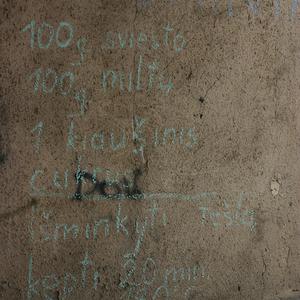 100g sviesto
100g miltų
1 kiaušinis
cukrus
išminkyti tešlą
kepti 20 min